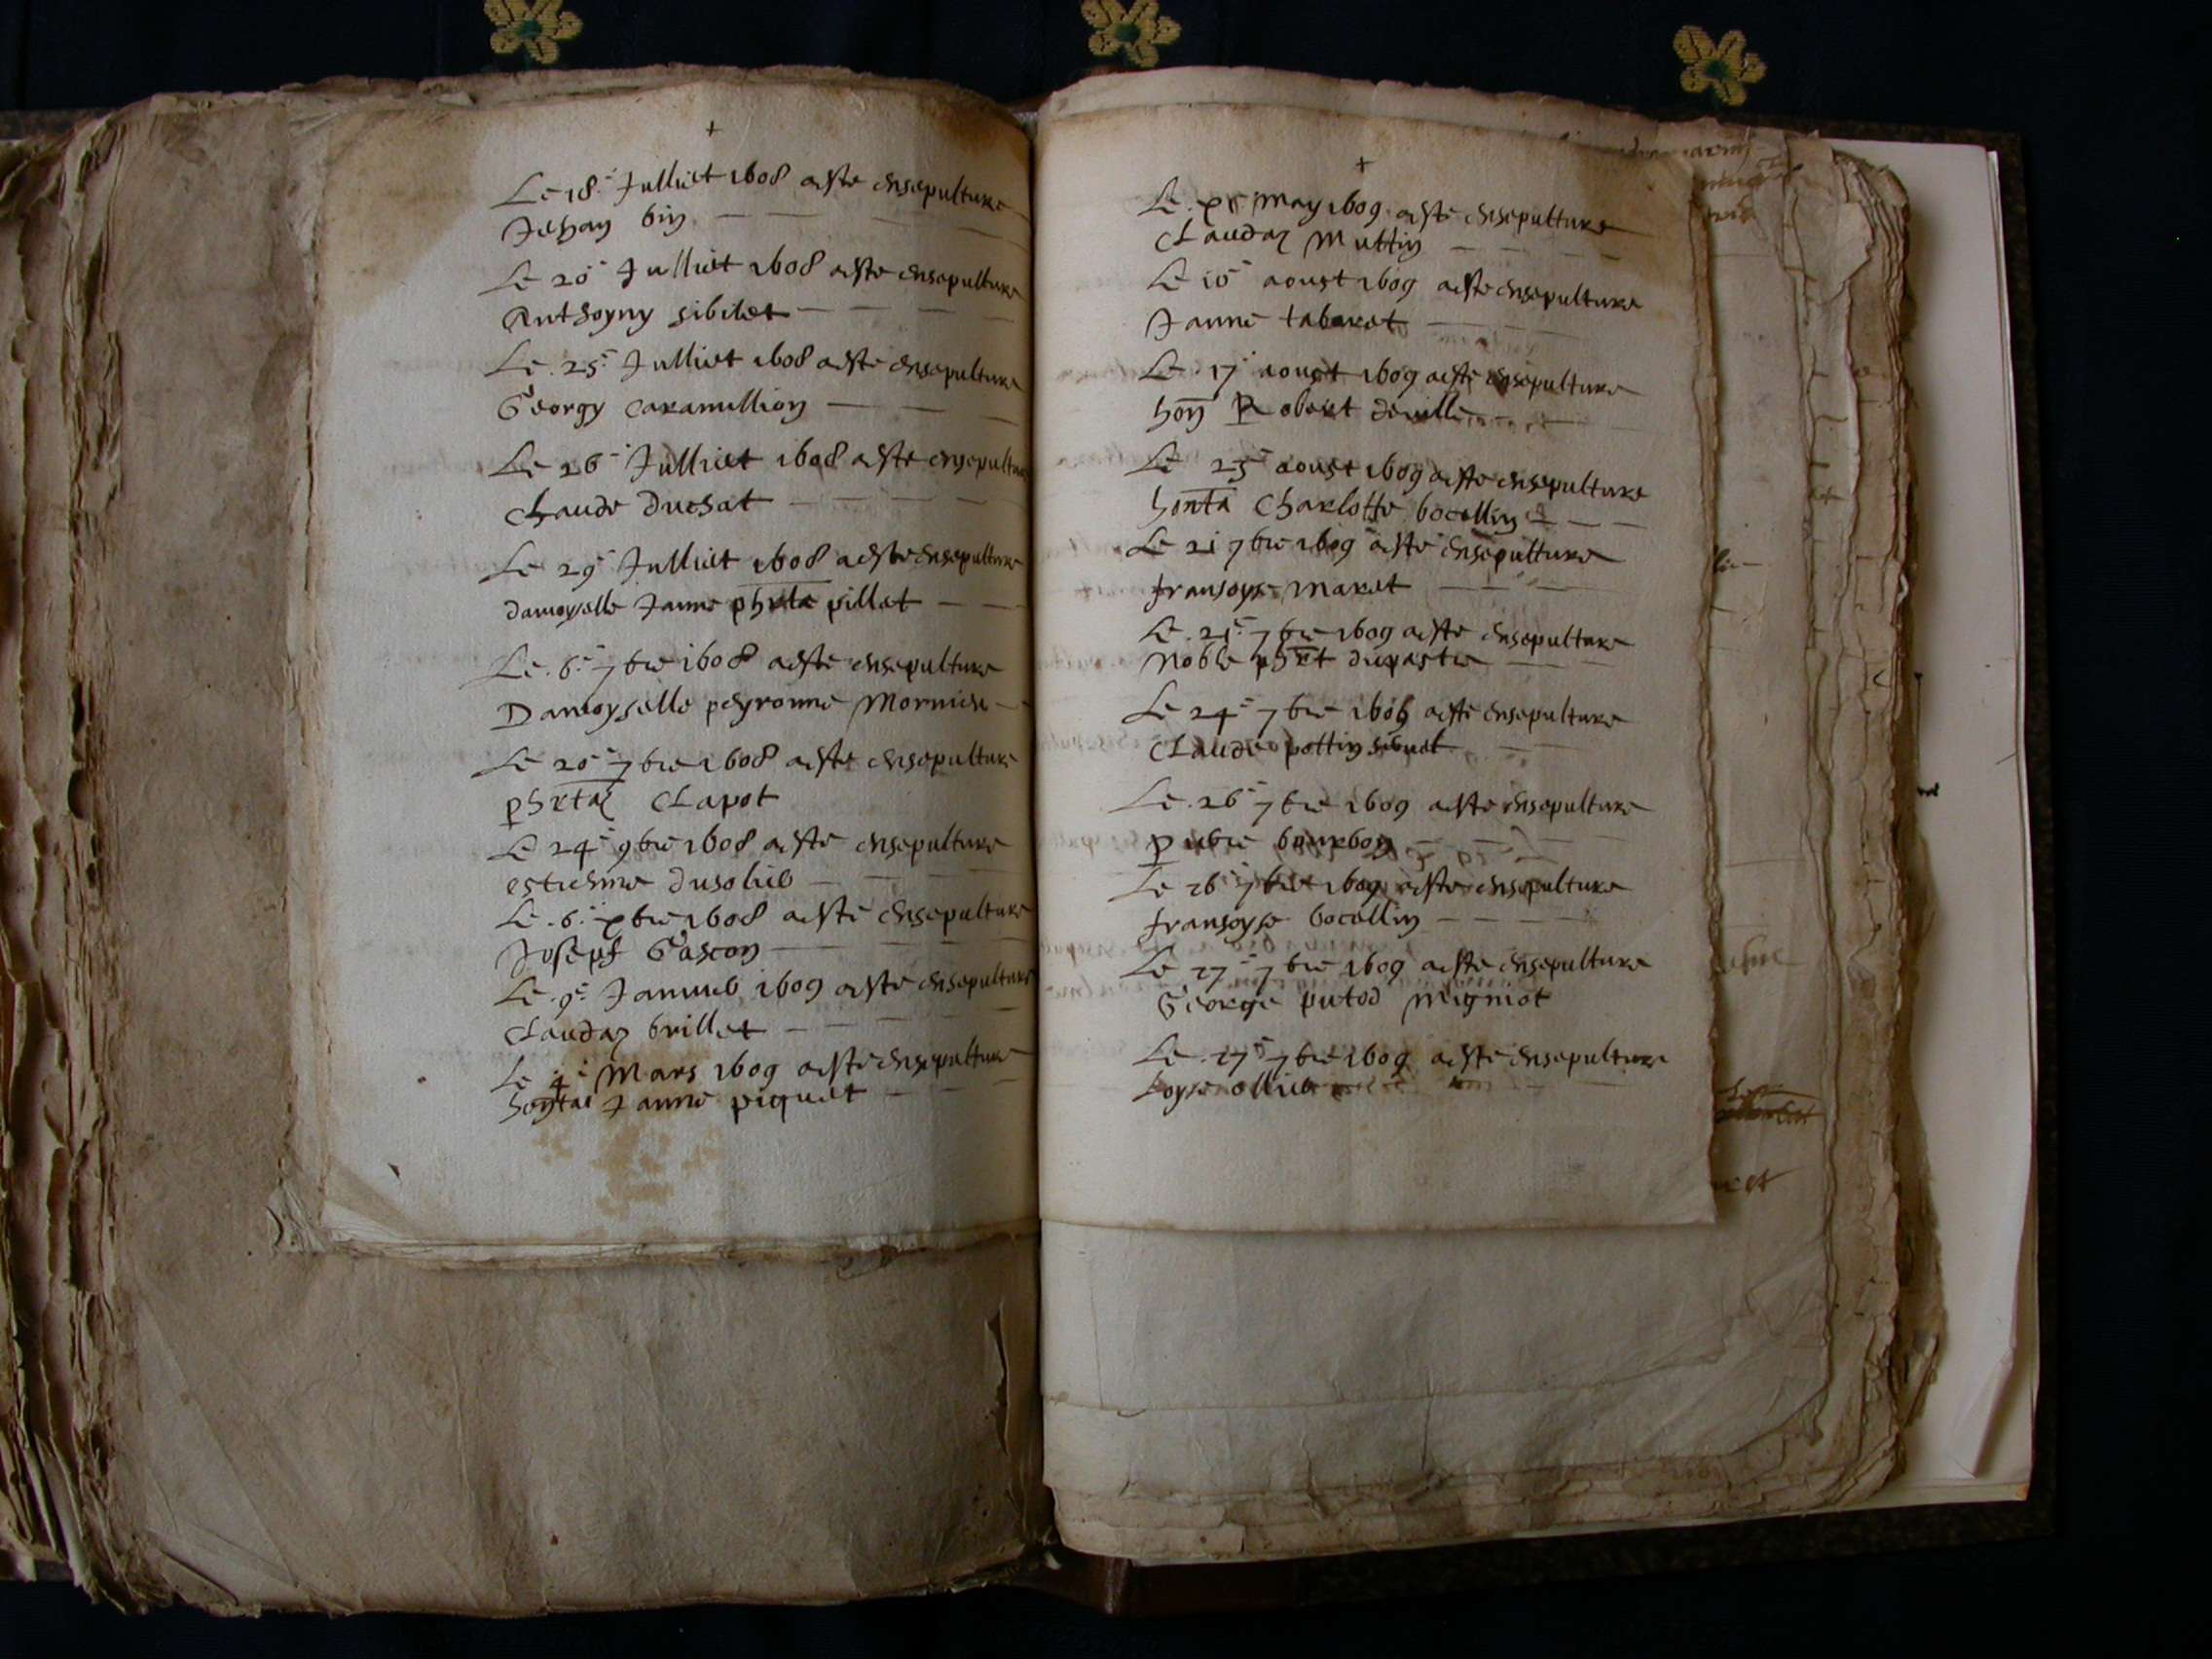 +
Le 18e Julliet 1608 a este ensepulture
Jehan bin
Le 20e Julliet 1608 a este ensepulture
Anthoyny sibilet
Le 25e Julliet 1608 a este ensepulture
Georgy caramillion
Le 26e Julliet 1608 a este ensepulture
Claude Duchat
Le 29e Julliet 1608 a este ensepulture
damoyselle Janne phrte pillet
Le 6e 7bre 1608 a este ensepulture
Damoyselle peyronne
Le 20e 7bre 1608 a este ensepulture
Clapot
Le 24e 9bre 1608 a este ensepulture
estiesne
Le 6e xbre 1608 a este ensepulture
Joseph Gascon
Le 9e Janvieb 1609 a este ensepulture
Claudaz brillet
Le 4e Mars 1609 a este ensepulture
Janne piquet
+
Le may 1609 a este ensepulture
Claudaz Muttin
Le 10e aoust 1609 a este ensepulture
Janne tabaret
Le 17e aoust 1609 a este ensepulture
hon Robert deville
Le 25e aoust 1609 a este ensepulture
honta Charlotte bocallin
Le 21 7bre 1609 a este ensepulture
fransoyse maret
Le 21e 7bre 1609 a este ensepulture
Noble phrt
Le 24e 7bre a este ensepulture
Claude pottin
Le 26e 7bre 1609 a este ensepulture
bourbon
Le 26e 7bre 1609 a este ensepulture
fransoyse bocallin
Le 27e 7bre 1609 a este ensepulture
George putod migniot
Le 27e 7bre 1609 a este ensepulture
Loyse